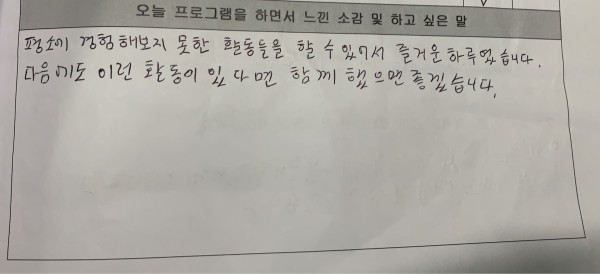 오늘 프로그램을 하면서 느낀 소감 및 하고 싶은 말
평소에 경험해보지 못한 활동들을 할 수 있어서 즐거운 하루였습니다.
다음에도 이런 활동이 있다면 함께 했으면 좋겠습니다.